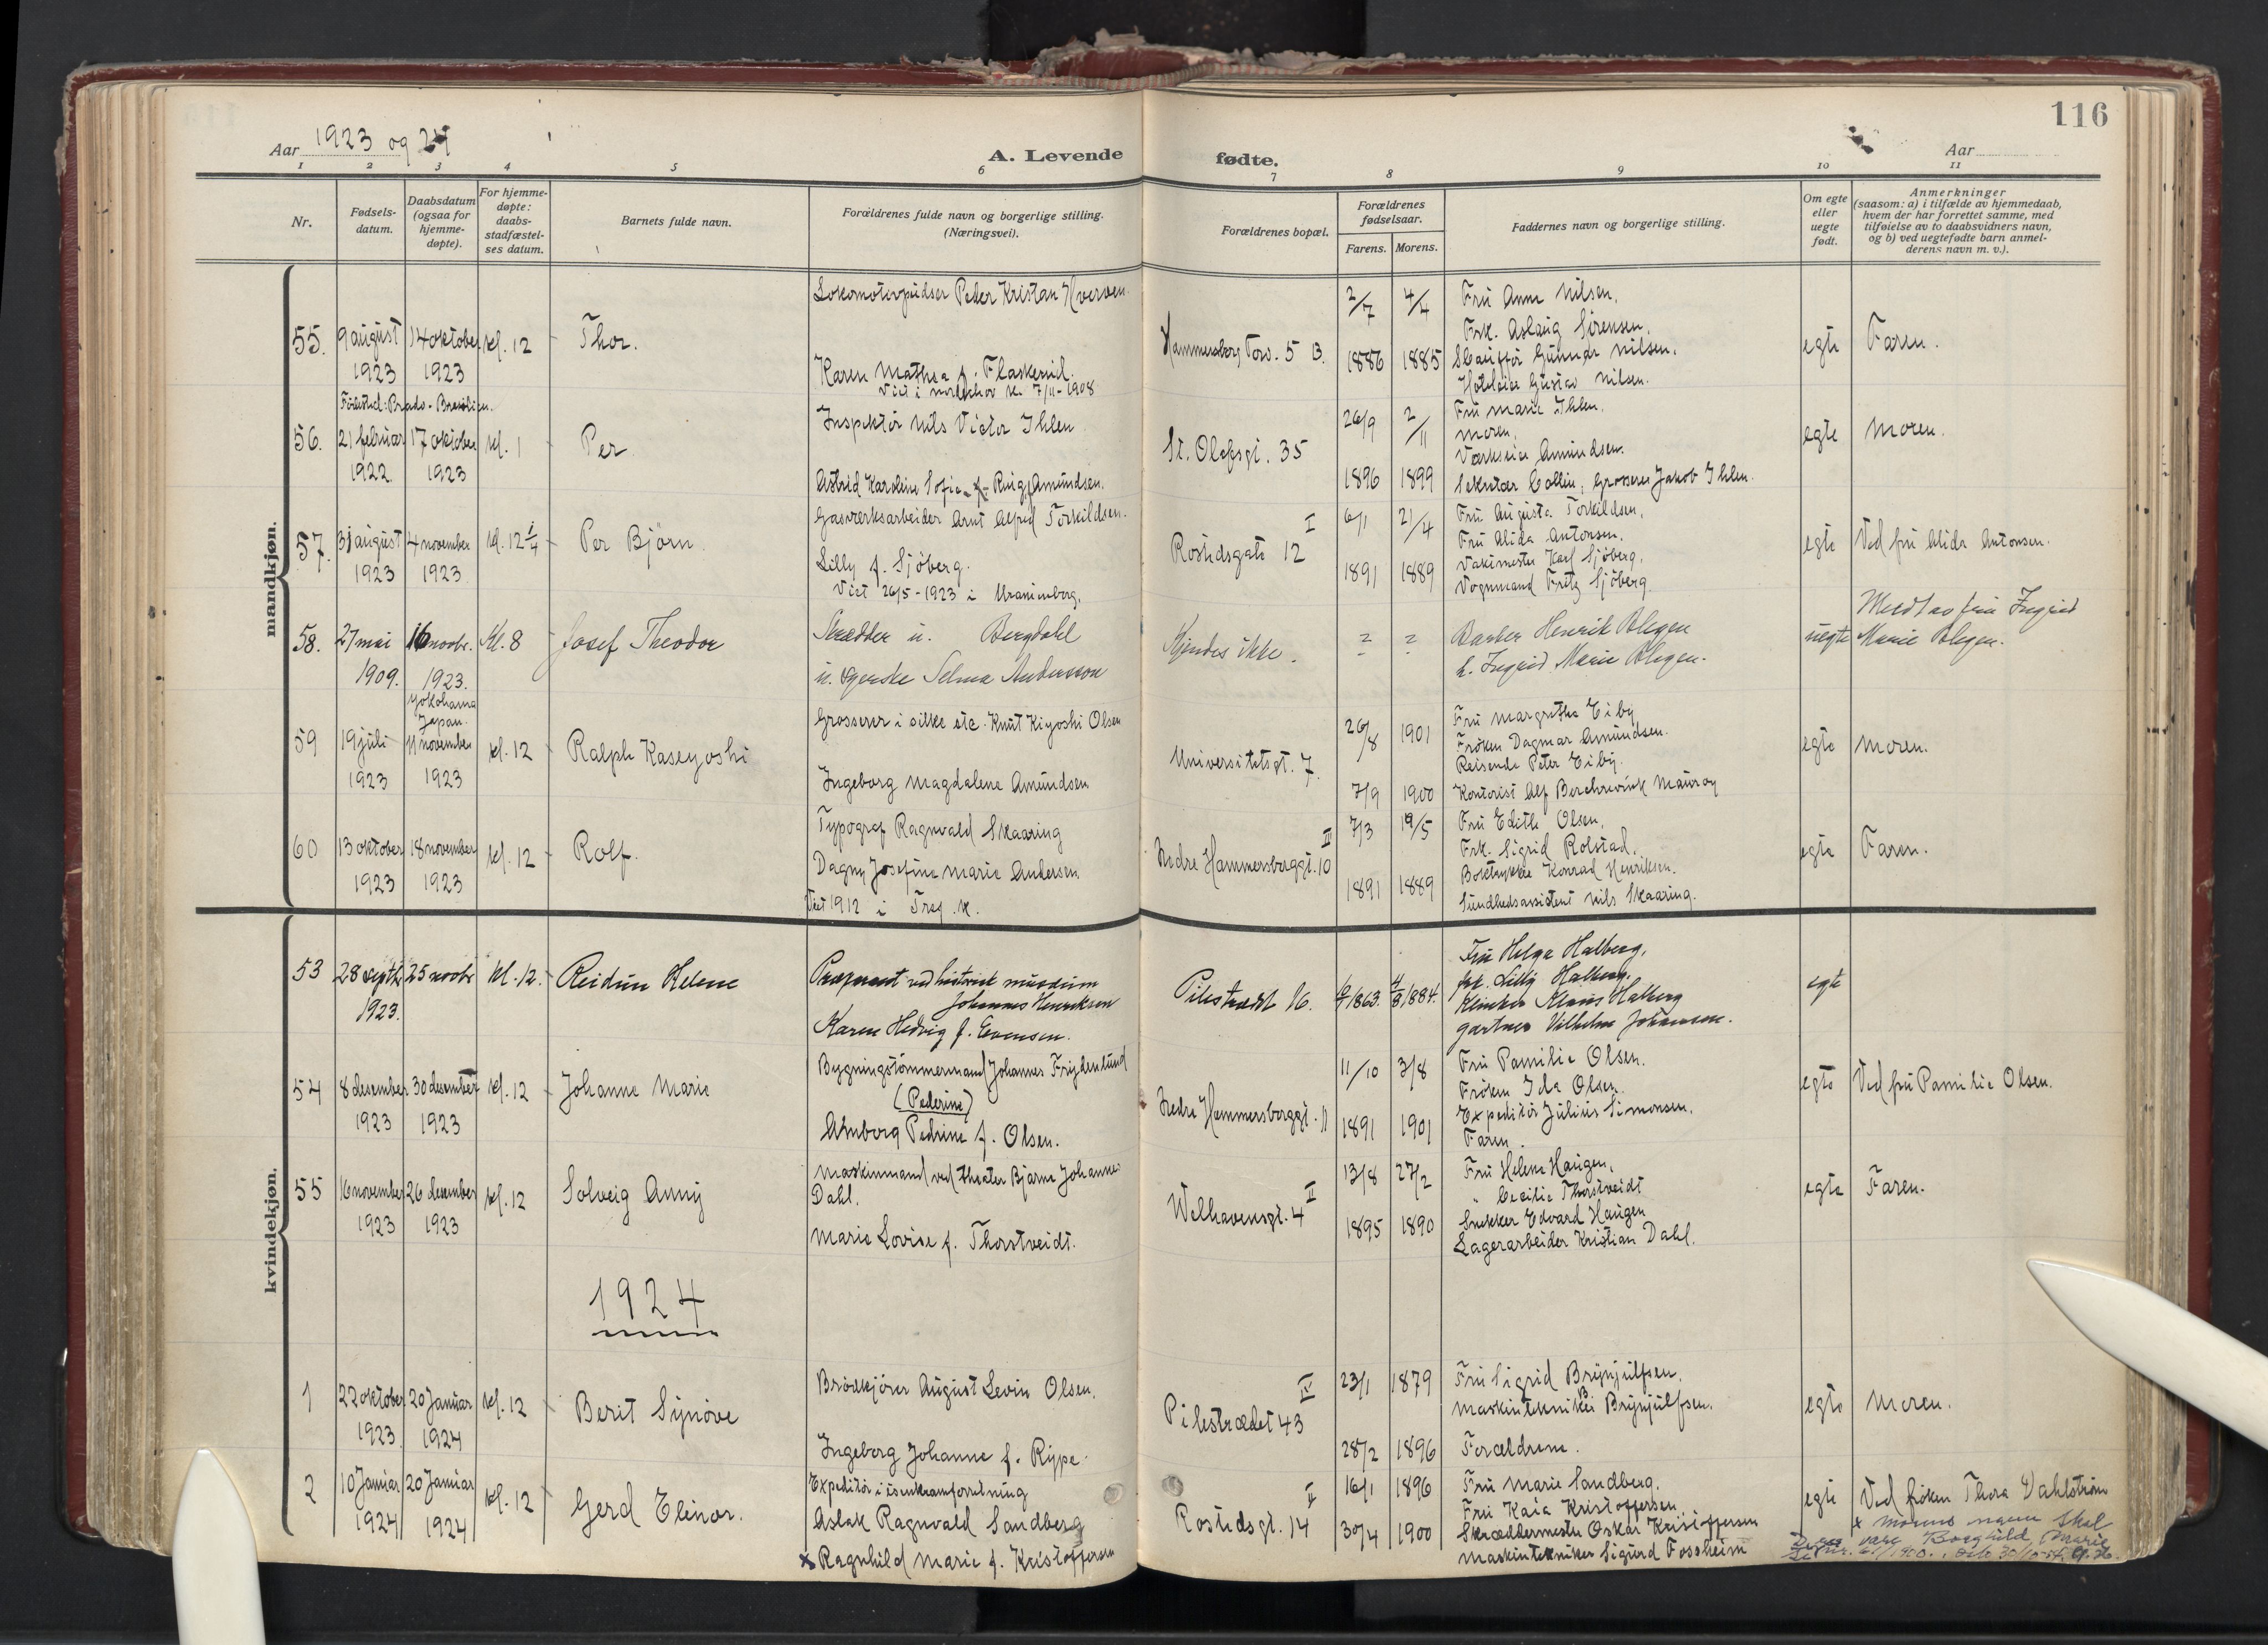 116
Aar 1923 og 24
A. Levende fødte.
Aar
1 2 3 4 5 6 7 8 9 10 11
Nr.
Fødsels-
datum.
Daabsdatum
(ogsaa for
hjemme-
døpte).
For hjemme-
døpte:
daabs-
stadfæstel-
ses datum.
Barnets fulde navn.
Forældrenes fulde navn og borgerlige stilling.
(Næringsvei).
Forældrenes bopæl.
Forældrenes
fødselsaar.
Farens. Morens.
Faddernes navn og borgerlige stilling.
Om egte
eller
uegte
født.
Anmerkninger
(saasom: a) i tilfælde av hjemmedaab,
hvem der har forrettet samme, med
tilføielse av to daabsvidners navn,
og b) ved uegtefødte barn anmel-
derens navn m. v.).
mandkjøn.
55. 9 august 14 oktober kl. 12 Thor.
1923 1923
Lokomotivpudser Peder Kristian Hverven
Karen Mathea f. Flaskerud.
Viet i Nordbehov k. 7/11-1908
Hammersborg Torv. 5 B.
2/7 4/4
1886 1885
Fru Anna Nilsen.
Frk. Aslaug Sørensen.
Chauffør Gunnar Nilsen.
Hoteleier Gustav Nilsen.
egte Faren.
Fødested: Brado-Brasilien.
56. 21 februar 17 oktober kl. 1 Per
1922. 1923
Inspektør Nils Victor Ihlen
Astrid Karoline Sofie f. Ring Amundsen.
St. Olafsgt. 35
26/9 2/11
1896 1899
Fru Marie Ihlen.
Moren.
Værkseier Amundsen.
Sekretær Collin, Grosserer Jakob Ihlen.
egte Moren.
57. 31 august 4 november kl. 12 1/4 Per Bjørn.
1923 1923
Gasverksarbeider Arnt Alfred Torkildsen.
Lilly f. Sjøberg.
Viet 26/5-1923 i Uranienborg.
Rostedsgate 12 I
6/1 21/4
1891 1889
Fru Augusta Torkildsen.
Fru Alida Antonsen.
Vaktmester Karl Sjøberg.
Vognmand Fritz Sjøberg.
egte Ved fru Alida Antonsen.
58. 27 mai 16 novbr. Kl. 8 Josef Theodor
1909. 1923.
Skrædder u. Bergdahl
u. Selma Andersson
Kjendes ikke.
? ?
Barber Henrik Blegen
h. Ingrid Marie Blegen.
uegte Meddt av fru Ingrid
Marie Blegen.
Yokohama
Japan.
59 19 juli 11 november kl. 12 Ralph Kaseyoshi
1923 1923
Grosserer i silke etc. Knut Kiyoshi Olsen
Ingeborg Magdalene Amundsen
Universitetsgt. 7.
26/8 1901
7/9 1900
Fru Margrethe Eiby
Frøken Dagmar Amundsen.
Reisende Peter Eiby.
Kontorist Alf
egte Moren.
60 13 oktober 18 november kl. 12 Rolf.
1923 1923
Typograf Ragnvald Skaaring
Dagny Josefine Marie Andersen
Viet 1912 i Tref. k.
Nedre Hammersborggt. 10 II
7/3 19/5
1891 1889
Fru Edith Olsen.
Frk. Sigrid Rolstad.
Boktrykker Konrad Henriksen.
Sundhedsassistent Nils Skaaring.
egte Faren.
kvindekjøn.
53 28 septbr 25 novbr kl. 12. Reidun Helene
1923.
Præparant ved historisk museum
Johannes Henriksen
Karen Hedvig f. Evensen.
Pilestrædet 16.
1863. 4/8 1884.
Fru Helga Halberg,
frk. Lilly Halberg,
Klinker Klaus Halberg
gartner Vilhelm Johansen.
egte
54 8 desember 30 desember kl. 12 Johanne Marie
1923 1923
Bygningstømmermand Johannes Frydenlund
(Pederine)
Almborg Pedrine f. Olsen.
Nedre Hammersborggt. 11
11/10 3/8
1891 1901
Fru Pamilie Olsen.
Frøken Ida Olsen.
Expeditør Julius Simonsen.
Faren.
egte Ved fru Pamilie Olsen.
55 16 november 26 desember kl. 12 Solveig Anny
1923 1923
Maskinmand ved theater Bjarne Johannes
Dahl.
Marie Lovise f. Thorstveidt.
Welhavensgt. 4 II
13/8 27/2
1895 1890
Fru Helene Haugen.
" Cecilie Thorstveidt
Snekker Edvard Haugen
Lagerarbeider Kristian Dahl.
egte Faren.
1924
1 22 oktober 20 Januar kl. 12 Berit Synøve
1923. 1924
Brødkjører August Levin Olsen.
Ingeborg Johanne f. Rype.
Pilestrædet 43 IV
23/1 1879
28/2 1896
Fru Sigrid Brynjulfsen.
Maskintekniker B. Brynjulfsen.
Forældrene.
egte Moren.
2 10 Januar 20 Januar kl. 12 Gerd Elinor.
1924 1924
Expeditør i isenkramforretning
Aslak Ragnvald Sandberg
x Ragnhild Marie f. Kristoffersen
Rostedsgt. 14 II
16/1 1896
30/4 1900
Fru Marie Sandberg.
Fru Kaia Kristoffersen
Skræddermester Oskar Kristoffersen
Maskintekniker Sigurd Fossheim
egte Ved frøken Thora Dahlstrøm
x morens navn skal
være Borghild Marie